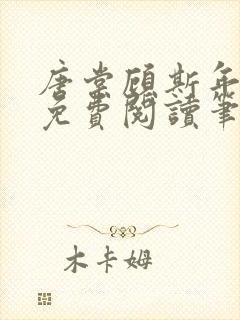 唐棠顾斯年
免費閱讀筆
木卡姆